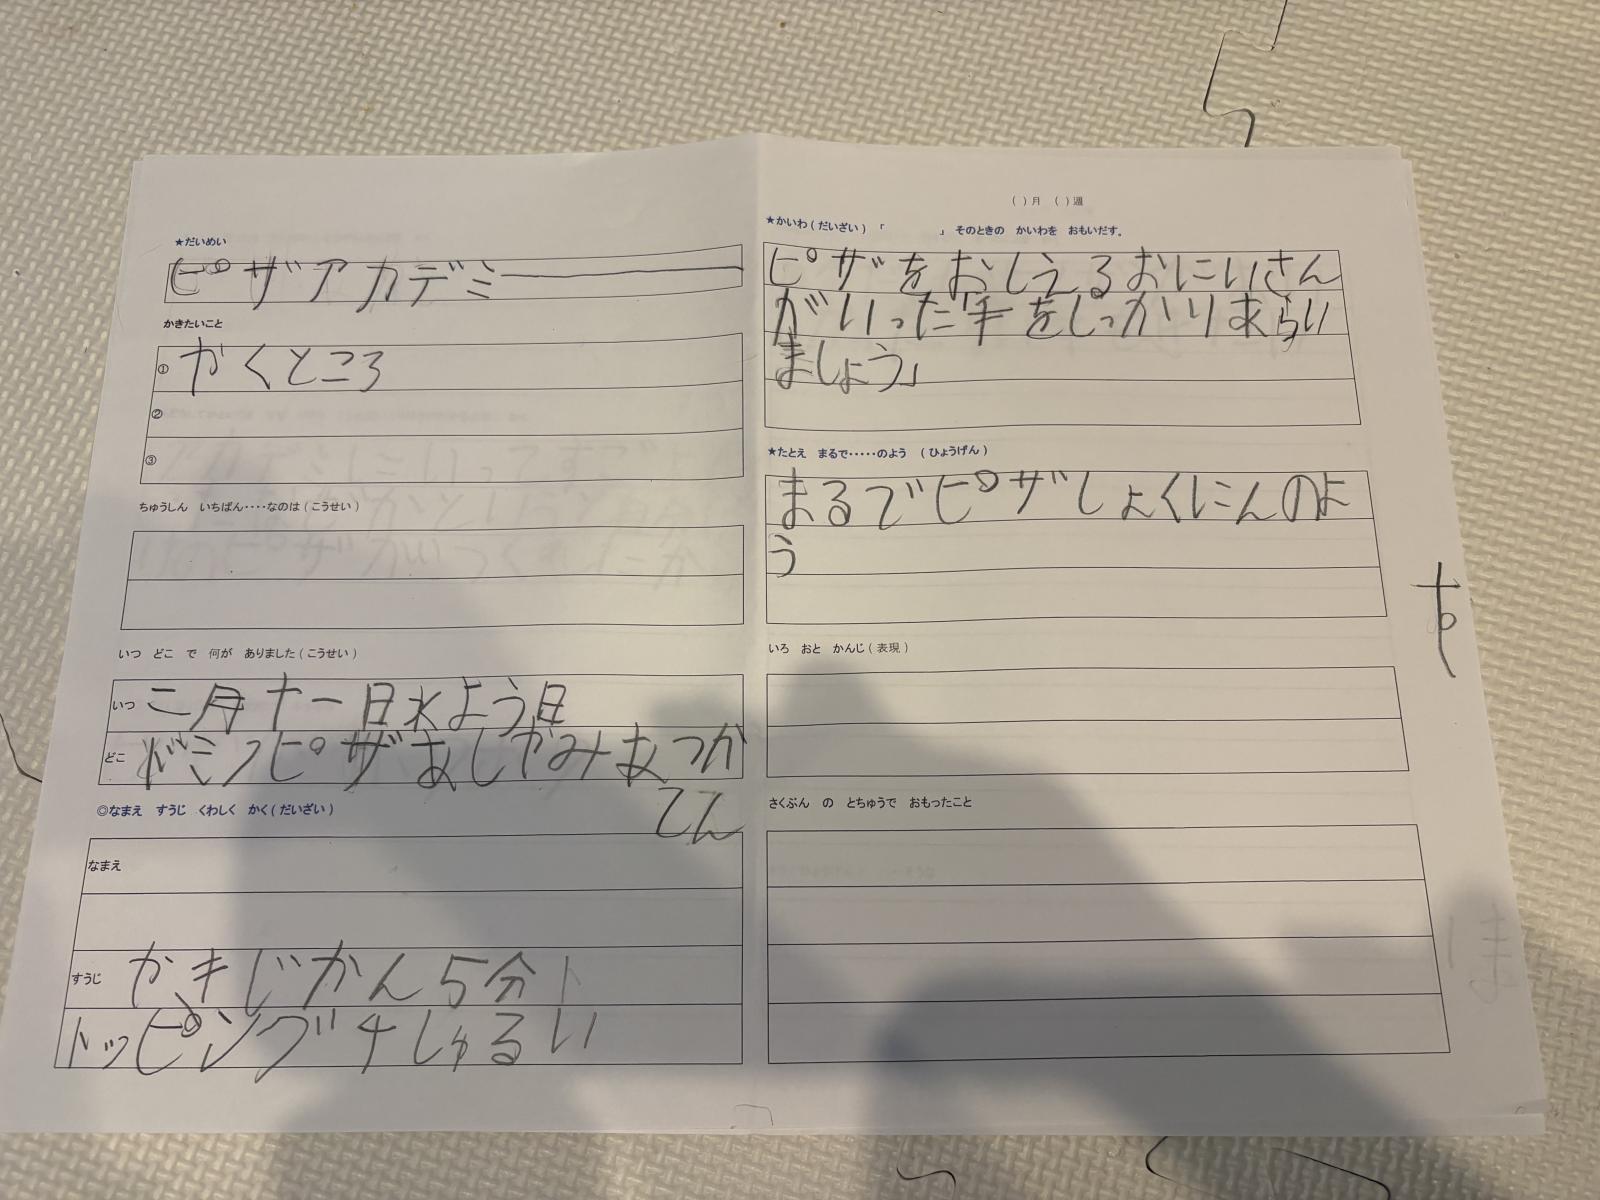 ★だいめい
ピザアカデミー
かきたいこと
① かくところ
②
③
ちゅうしん いちばん‥‥なのは(こうせい)
いつ どこ で 何が ありました(こうせい)
いつ 二月十一日水よう日
どこ ドミノピザあしやみなつか
てん
◎なまえ すうじ くわしく かく(だいざい)
なまえ
すうじ かきじかん5分
トッピング4しゅるい
( )月 ( )週
★かいわ(だいざい) 「 」 そのときの かいわを おもいだす。
ピザをおしえるおにいさん
がいった「手をしっかりあらい
ましょう」
★たとえ まるで‥‥‥のよう (ひょうげん)
まるでピザしょくにんのよ
う
いろ おと かんじ(表現)
さくぶん の とちゅうで おもったこと
す